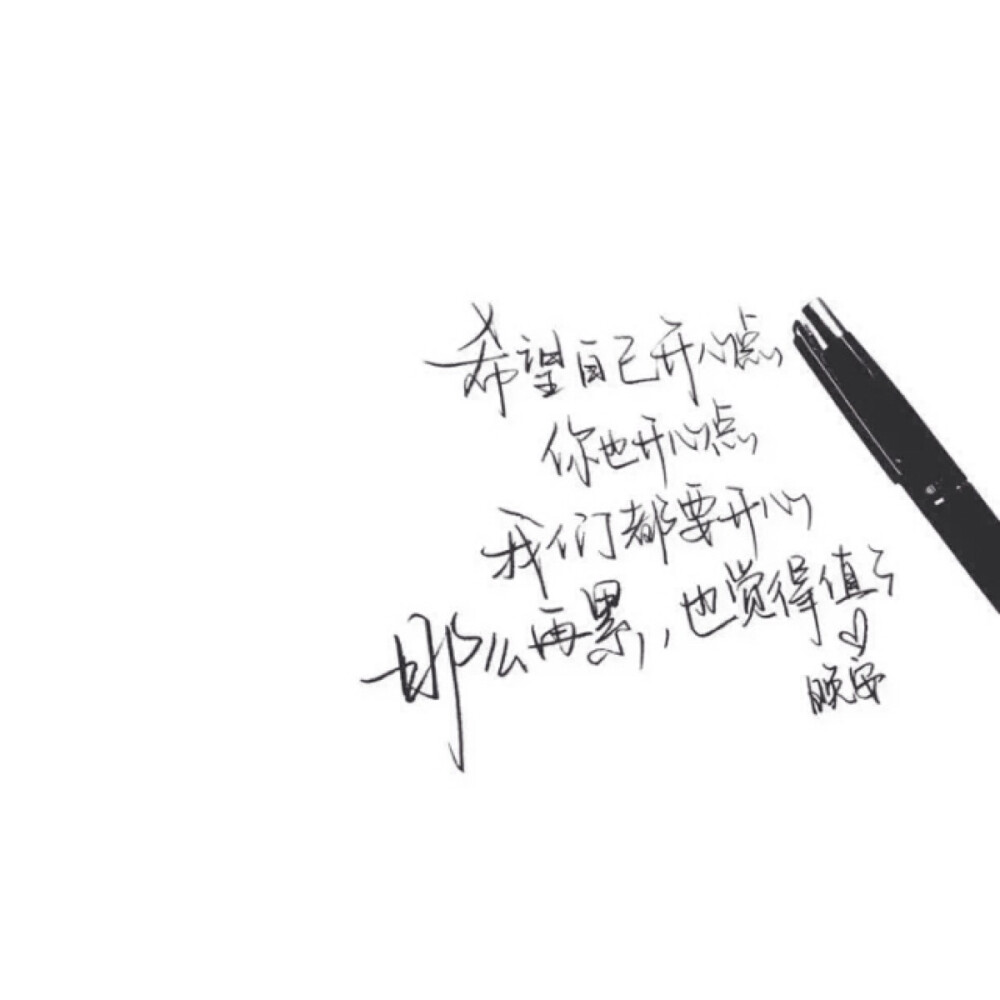 希望自己开心点
你也开心点
我们都要开心
那么再累，也觉得值了
晚安